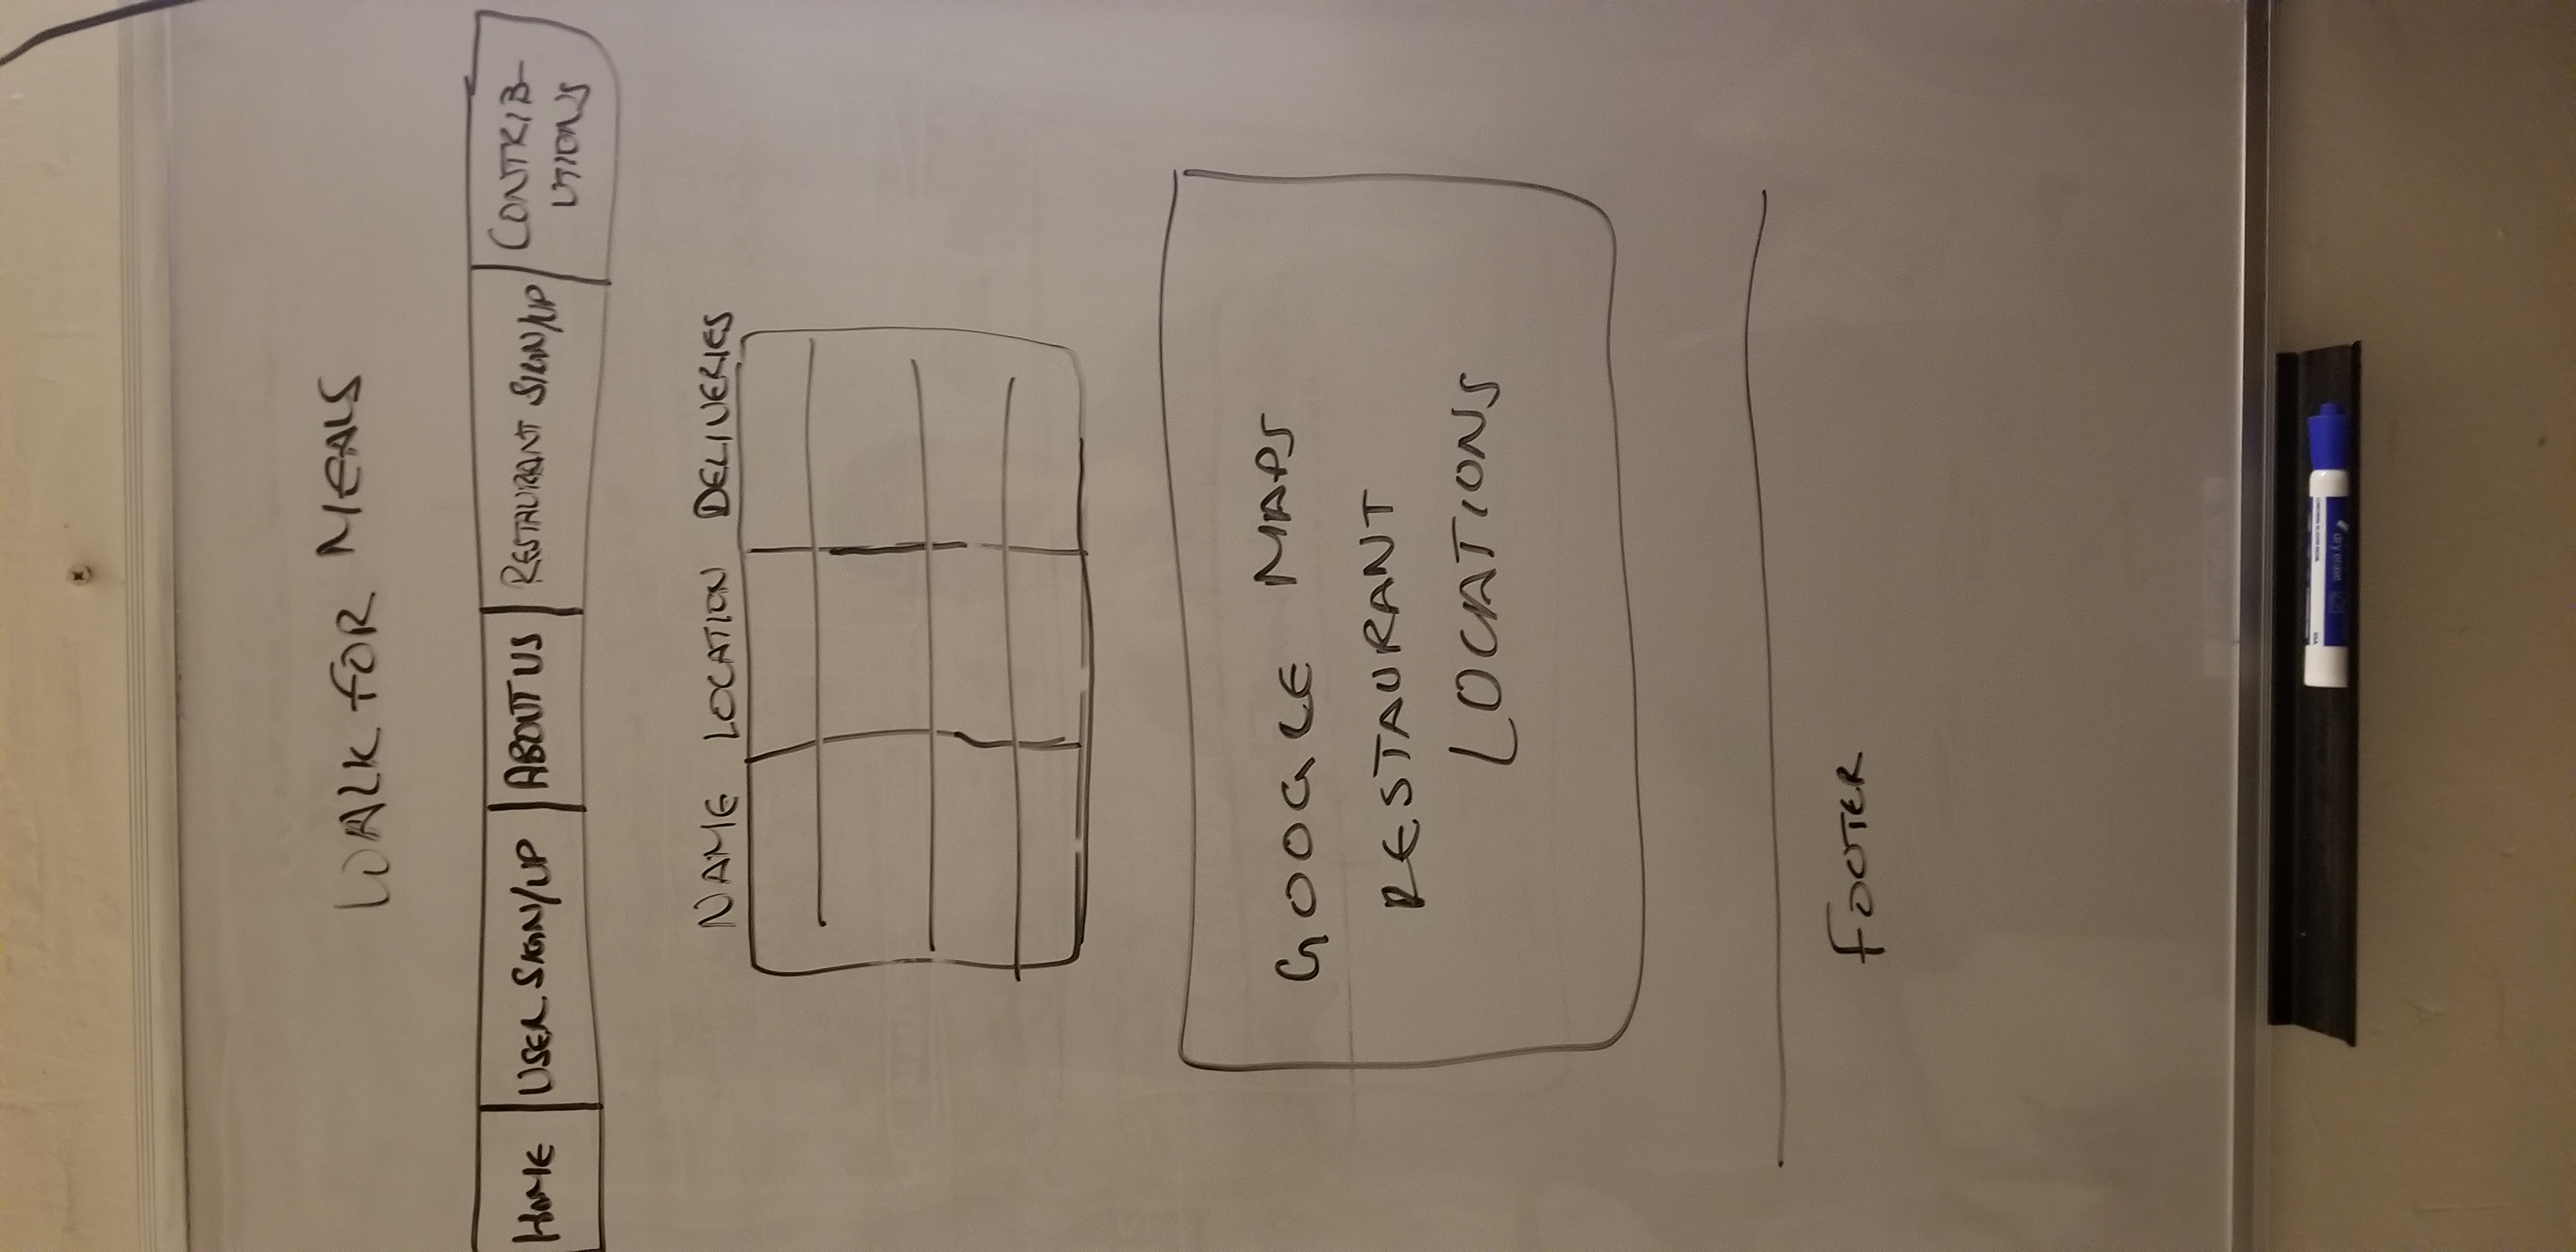 WALK FOR MEALS
HOME USER SIGN/UP ABOUT US RESTAURANT SIGN/UP CONTRIB-
UTIONS
NAME LOCATION DELIVERIES
GOOGLE MAPS
RESTAURANT
LOCATIONS
FOOTER